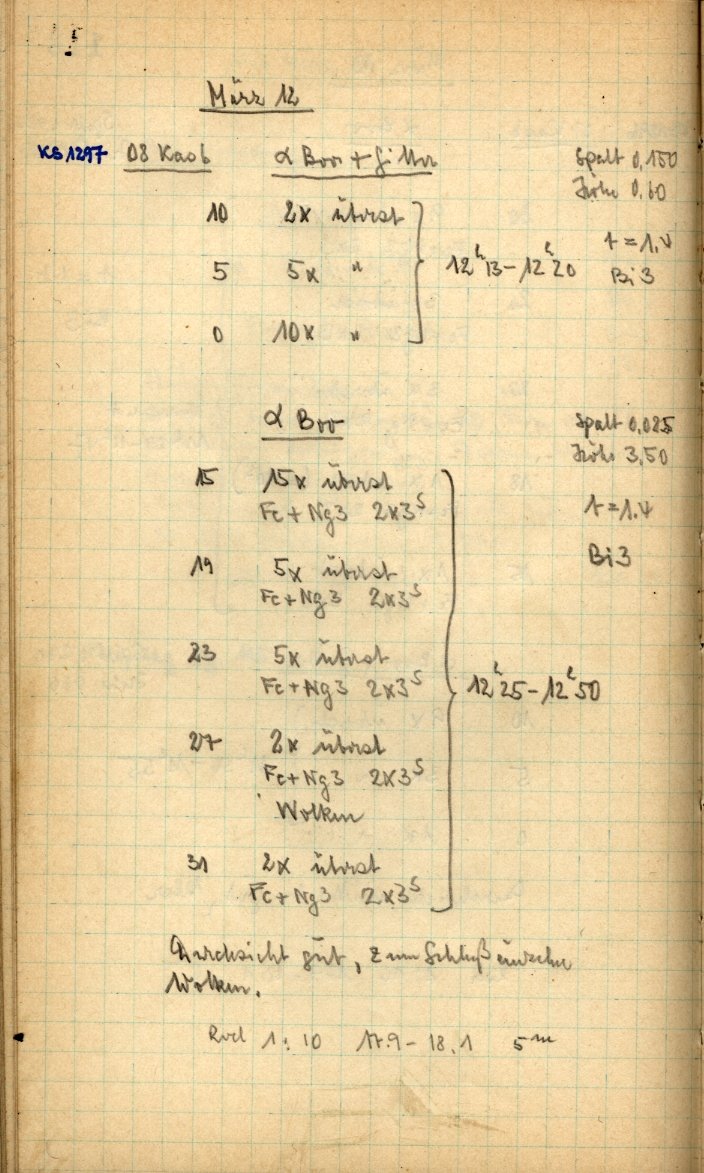 März 12
KS 1297 D8 Kaob α Boo + Gitter Spalt 0,150
Höhe 0,60
10 2x überst
t = 1.4
5 5x " 12ʰ13 – 12ʰ20 Bi 3
0 10x "
α Boo Spalt 0,025
Höhe 3,50
15 15x überst
Fc + Ng3 2x3ˢ t = 1.4
19 5x überst Bi 3
Fc + Ng3 2x3ˢ
23 5x überst
Fc + Ng3 2x3ˢ 12ʰ25 – 12ʰ50
27 2x überst
Fc + Ng3 2x3ˢ
Wolken
31 2x überst
Fc + Ng3 2x3ˢ
Durchsicht gut, zum Schluß einzelne
Wolken.
Rod 1:10 17.9 – 18.1 5ᵐ